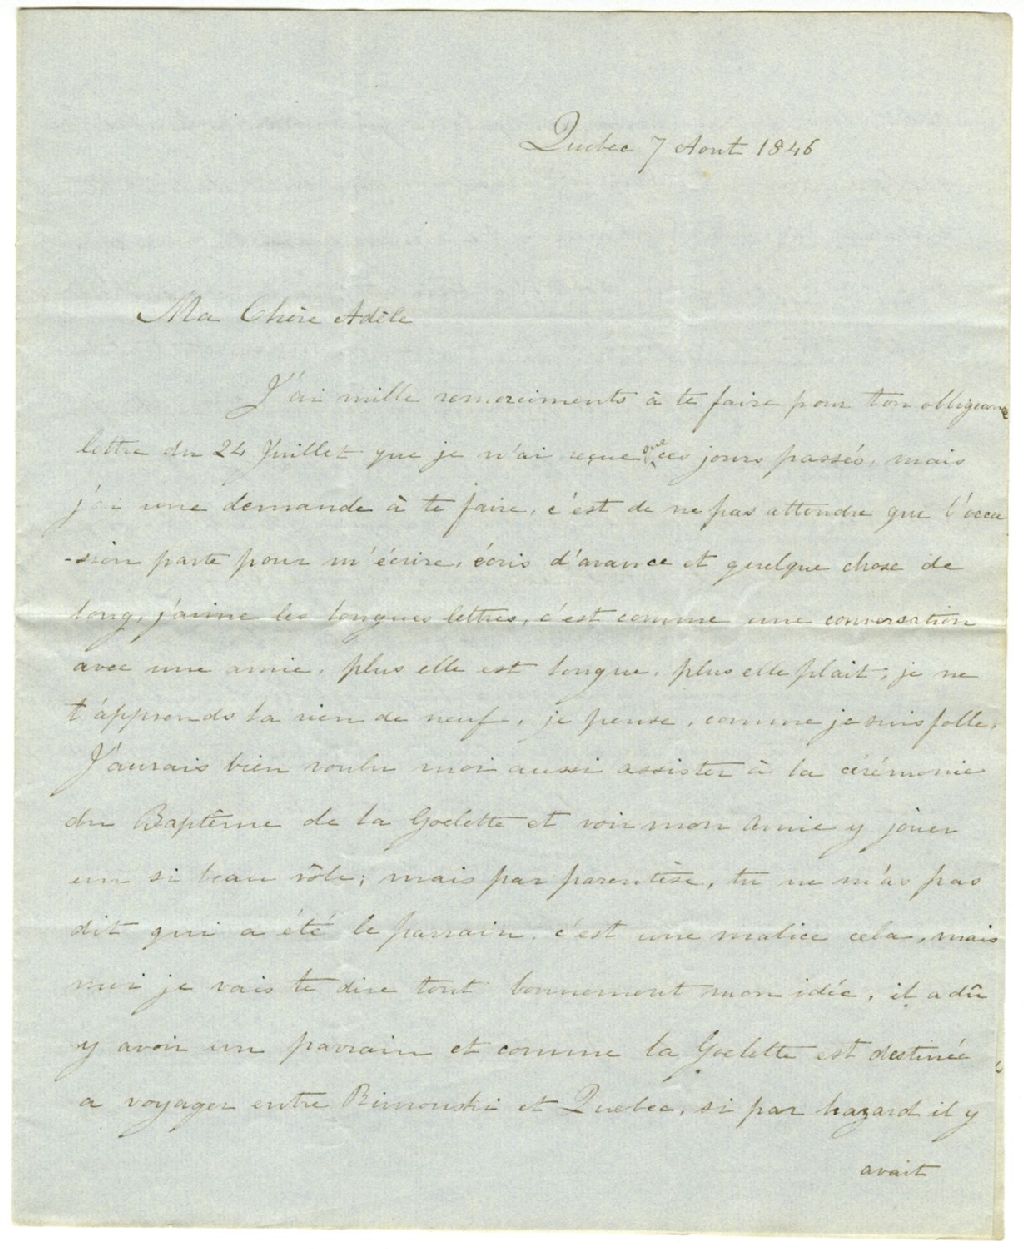 Quebec 7 Aout 1846
Ma Chère Adèle
J'ai mille remerciments à te faire pour ton obligeance
lettre du 24 Juillet que je n'ai reçue que ces jours passés, mais
j'ai une demande à te faire, c'est de ne pas attendre que l'occa
-sion parte pour m'écrire, écris d'avance et quelque chose de
long, j'aime les longues lettres, c'est comme une conversation
avec une amie, plus elle est longue, plus elle plait, je ne
t'apprends la rien de neuf, je pense, comme je suis folle,
J'aurais bien voulu moi aussi assister à la cérémonie
du Baptême de la Goelette et voir mon Amie y jouer
un si beau rôle; mais par parentèse, tu ne m'as pas
dit qui a été le parrain, c'est une malice cela, mais
moi je vais te dire tout bonnement mon idée, il a dû
y avoir un parrain et comme la Goelette est destinée
a voyager entre Rimouski et Quebec, si par hazard il y
avait